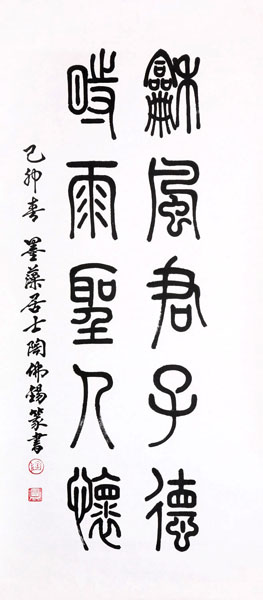 龢風君子德
時雨聖人懷
己卯春 墨藻居士陶佛錫篆書